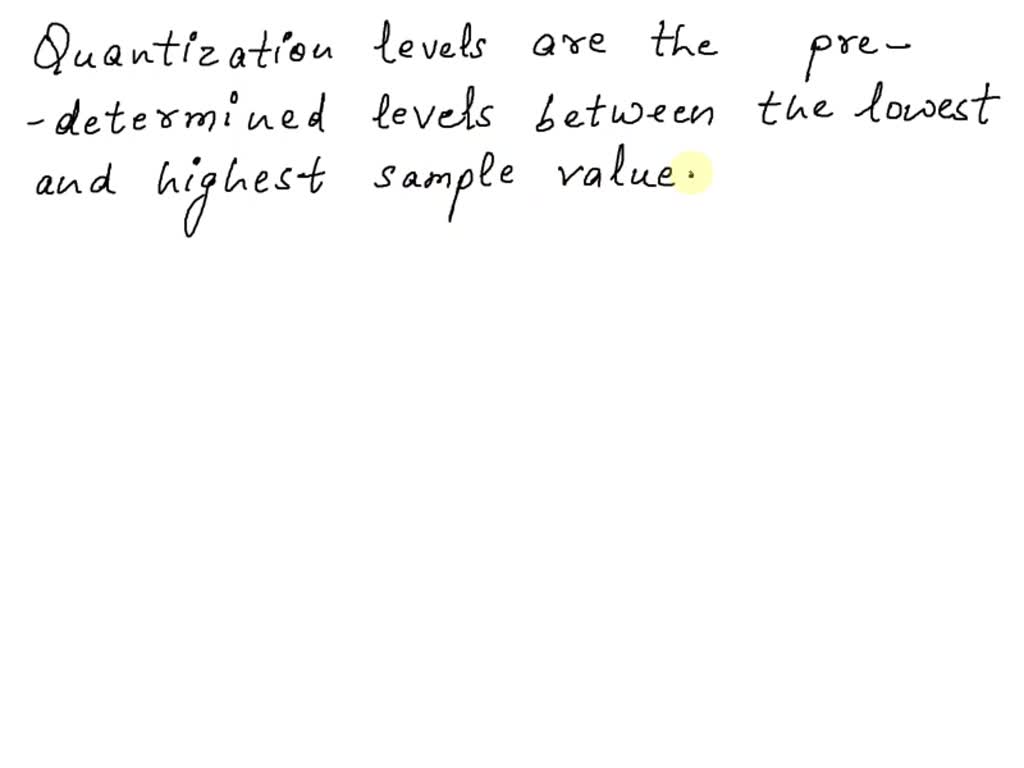 Quantization levels are the pre-
-determined levels between the lowest
and highest sample value.